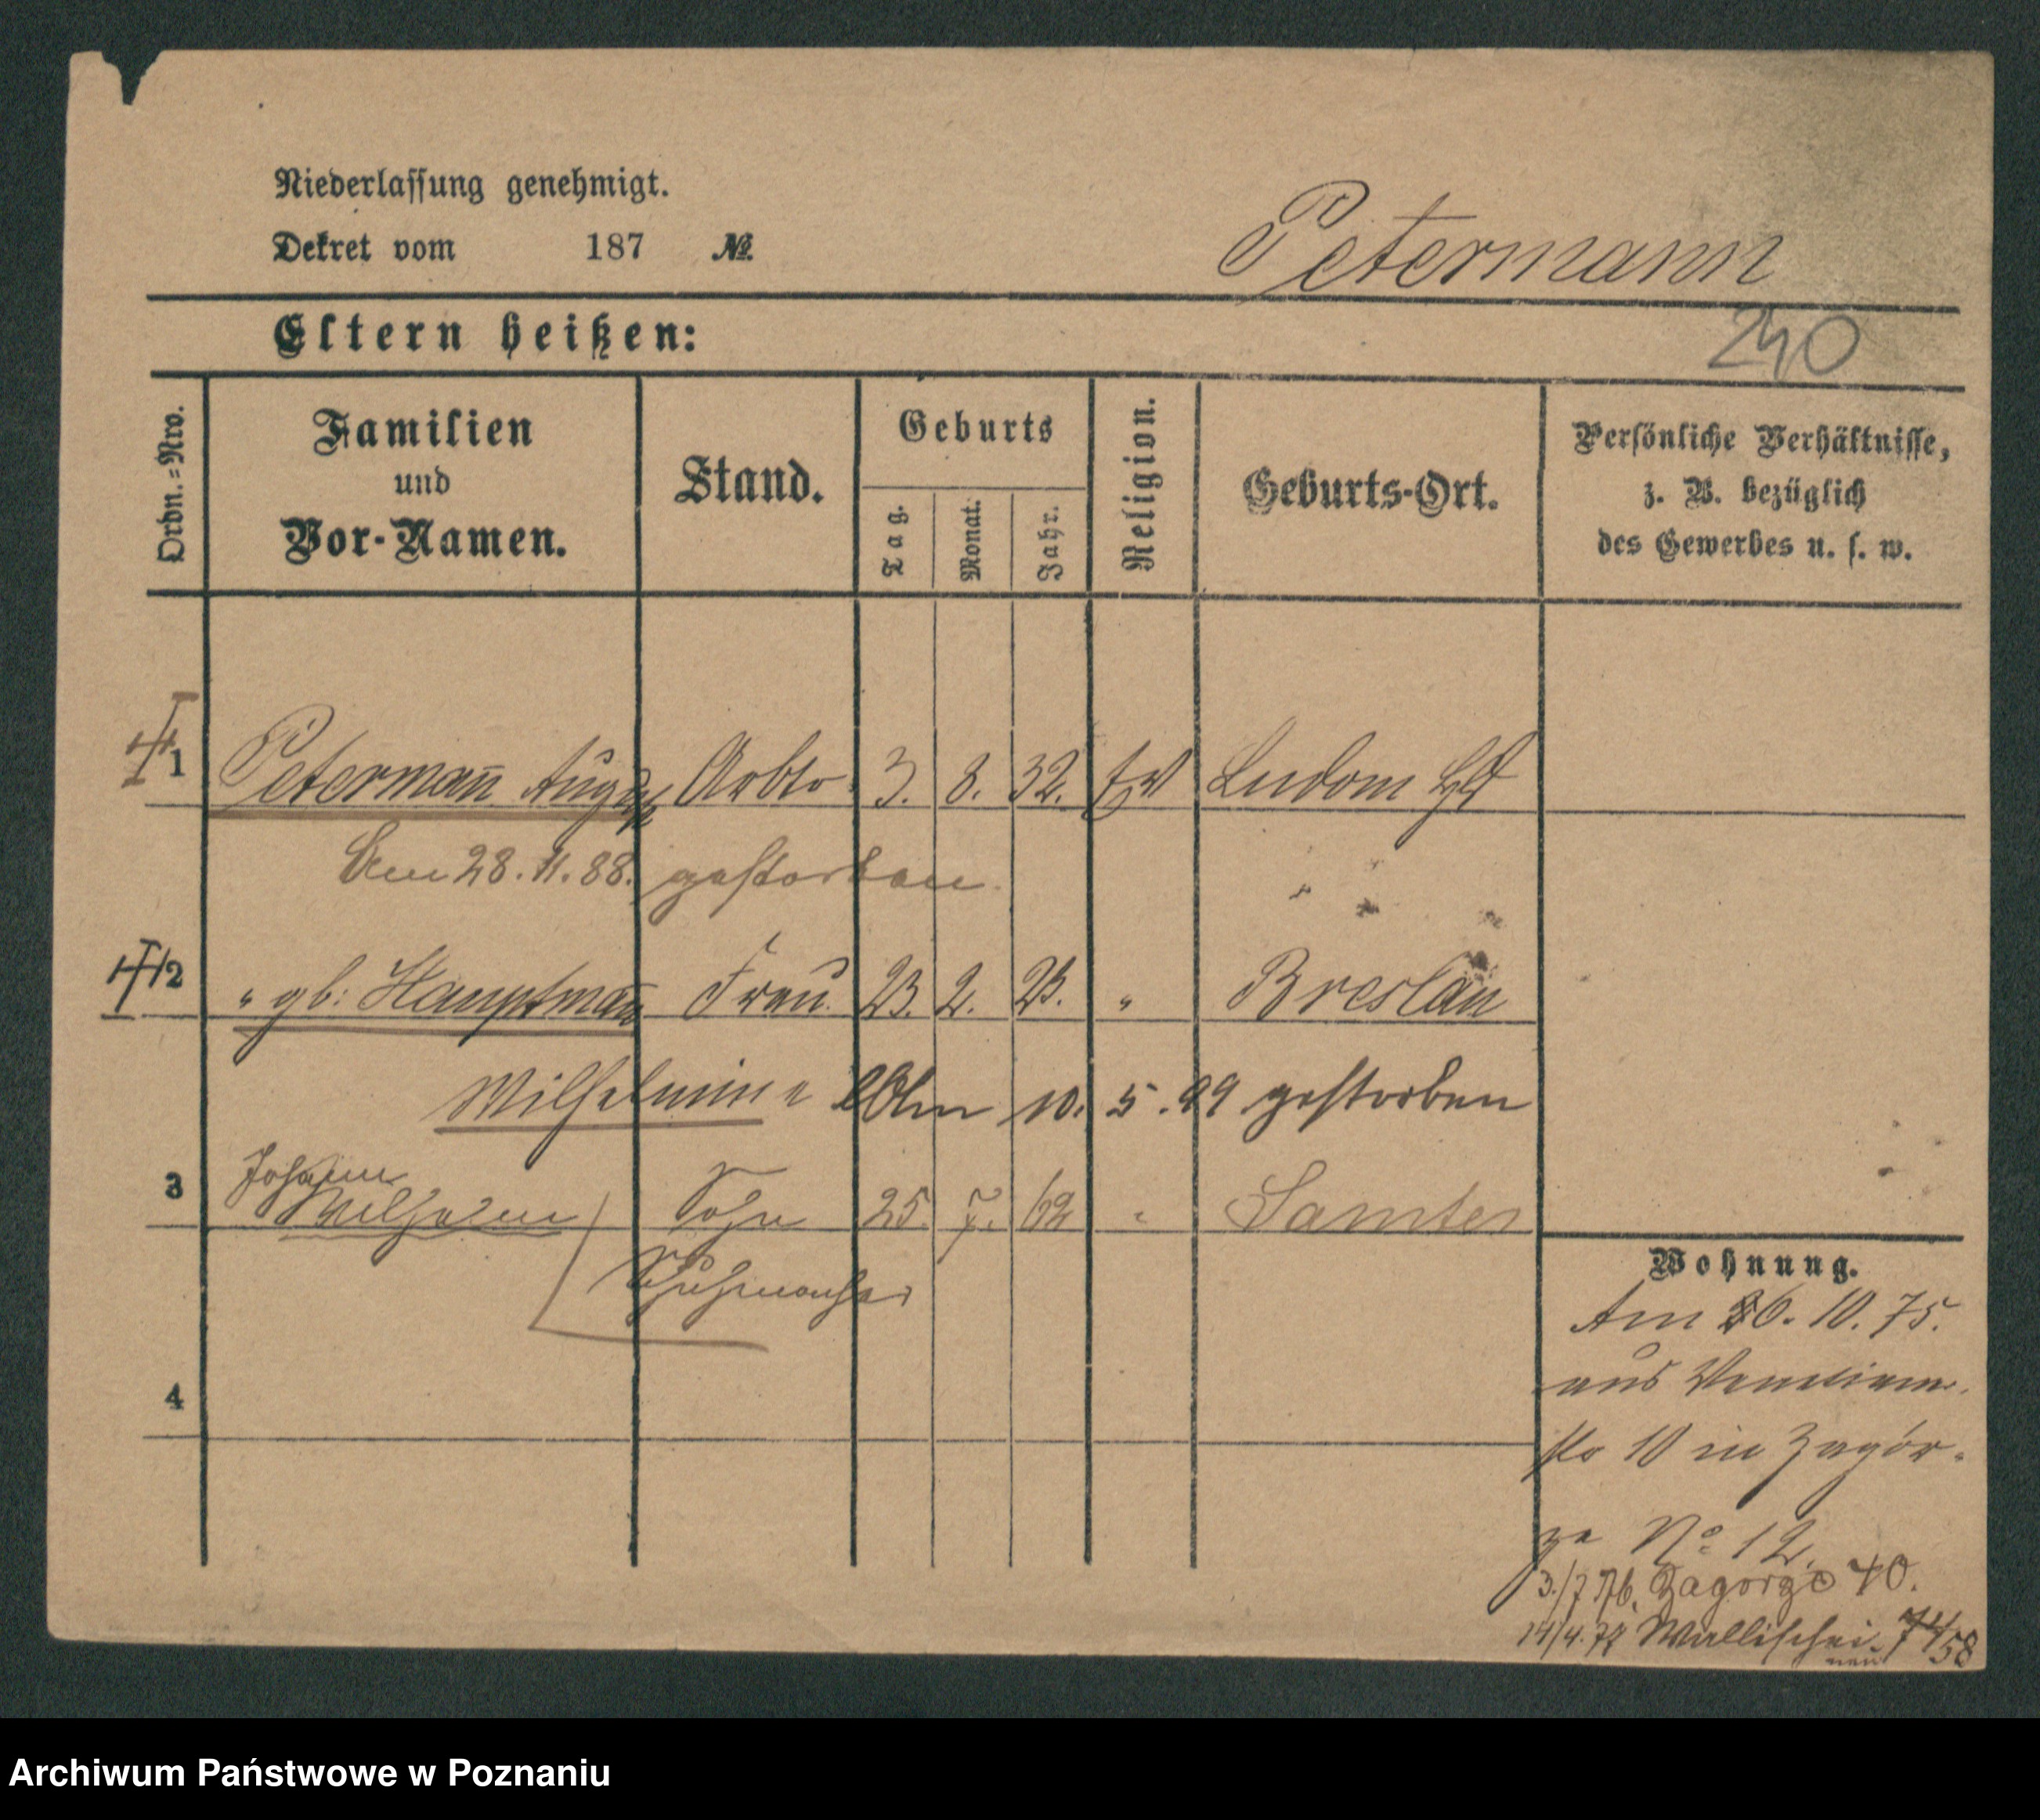 Niederlassung genehmigt.
Dekret vom 187 №
Petermann
240
Eltern heißen:
Ordn.=Nro.
Familien und Vor-Namen.
Stand.
Geburts
Tag.
Monat.
Jahr.
Religion.
Geburts-Ort.
Persönliche Verhältnisse,
z. B. bezüglich
des Gewerbes u. s. w.
1 Petermañ August Arbtr 3. 8. 32. Ev Ludom
Den 28. 11. 88. gestorben.
2 " gb: Hauptmañ Frau 23. 2. 23. " Breslau
Wilhelmine Am 10. 5. 99 gestorben
3 Johann
Wilhelm Sohn 25. 7. 62 " Samter
Schuhmacher
4
Wohnung.
Am 26. 10. 75.
aus
10 in Zagór-
ze No 12.
3./7 76. Zagorze 40.
14/4. 77 Wallischei 74/58
neu